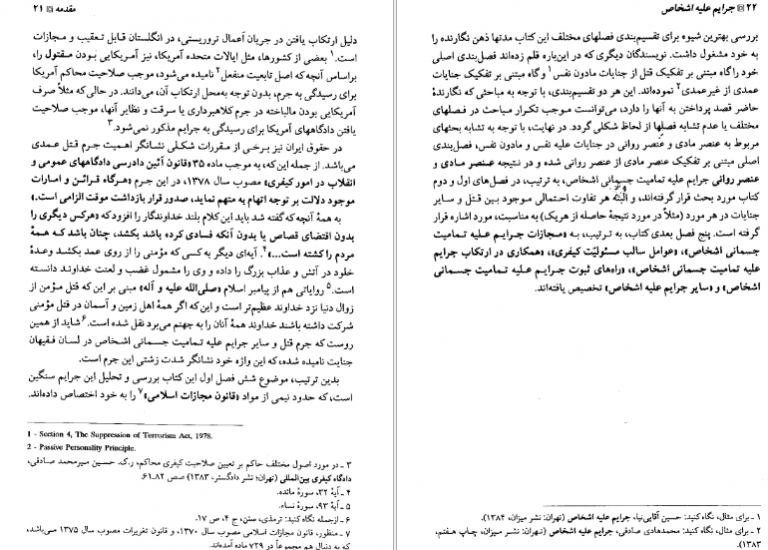 مقدمه ۲۱
دلیل ارتکاب یافتن در جریان أعمال تروریستی، در انگلستان قابل تعقیب و مجازات
است.۱ بعضی از کشورها، مثل ایالات متحده آمریکا، نیز آمریکایی بودن مقتول را،
براساس آنچه که اصل تابعیت منفعل۲ نامیده می‌شود، موجب صلاحیت محاکم آمریکا
برای رسیدگی به جرم، بدون توجه به‌محل ارتکاب آن، می‌دانند. در حالی که مثلاً صرف
آمریکایی بودن مالباخته در جرم کلاهبرداری یا سرقت و نظایر آنها، موجب صلاحیت
یافتن دادگاههای آمریکا برای رسیدگی به جرایم مذکور نمی‌شود.۳
در حقوق ایران نیز برخی از مقررات شکلی نشانگر اهمیت جرم قتل عمدی
می‌باشد. از جمله این که، به موجب ماده ۳۵ «قانون آئین دادرسی دادگاههای عمومی و
انقلاب در امور کیفری» مصوب سال ۱۳۷۸، در این جرم «هرگاه قرائن و امارات
موجود دلالت بر توجه اتهام به متهم نماید، صدور قرار بازداشت موقت الزامی است.»
به همهٔ آنچه که گفته شد باید این کلام بلند خداوندگار را افزود که «هرکس دیگری را
بدون اقتضای قصاص یا بدون آنکه فسادی کرده باشد بکشد، چنان باشد که همهٔ
مردم را کشته است...»۴. آیه‌ای دیگر به کسی که مؤمنی را از روی عمد بکشد وعدهٔ
خلود در آتش و عذاب بزرگ را داده و وی را مشمول غضب و لعنت خداوند دانسته
است.۵ روایاتی هم از پیامبر اسلام «صلی‌الله علیه و آله» مبنی بر این که قتل مؤمن از
زوال دنیا نزد خداوند عظیم‌تر است و این که اگر همهٔ اهل زمین و آسمان در قتل مؤمنی
شرکت داشته باشند خداوند همهٔ آنان را به جهنم می‌برد نقل شده است.۶ شاید از همین
روست که جرم قتل و سایر جرایم علیه تمامیت جسمانی اشخاص در لسان فقیهان
جنایت نامیده شده، که این واژه خود نشانگر شدت زشتی این جرم است.
بدین ترتیب، موضوع شش فصل اول این کتاب بررسی و تحلیل این جرایم سنگین
است، که حدود نیمی از مواد «قانون مجازات اسلامی»۷ را به خود اختصاص داده‌اند.
1 - Section 4, The Suppression of Terrorism Act, 1978.
2 - Passive Personality Principle.
۳ ـ در مورد اصول مختلف حاکم بر تعیین صلاحیت کیفری محاکم، ر.ک. حسین میرمحمد صادقی،
دادگاه کیفری بین‌المللی (تهران: نشر دادگستر، ۱۳۸۳) صص ۸۲ـ۶۱.
۴ ـ آیهٔ ۳۲، سورهٔ مائده.
۵ ـ آیهٔ ۹۳، سورهٔ نساء.
۶ ـ ازجمله نگاه کنید: ترمذی، سنن، ج ۴، ص ۱۷.
۷ ـ منظور، قانون مجازات اسلامی مصوب سال ۱۳۷۰، و قانون تعزیرات مصوب سال ۱۳۷۵ می‌باشد،
که به دنبال هم مجموعاً در ۷۲۹ ماده آمده‌اند.
۲۲ جرایم علیه اشخاص
بررسی بهترین شیوه برای تقسیم‌بندی فصلهای مختلف این کتاب مدتها ذهن نگارنده را
به خود مشغول داشت. نویسندگان دیگری که در این‌باره قلم زده‌اند فصل‌بندی اصلی
خود را گاه مبتنی بر تفکیک قتل از جنایات مادون نفس۱ و گاه مبتنی بر تفکیک جنایات
عمدی از غیرعمدی۲ نموده‌اند. این هر دو تقسیم‌بندی، با توجه به مباحثی که نگارندهٔ
حاضر قصد پرداختن به آنها را دارد، می‌توانست موجب تکرار مباحث در فصلهای
مختلف یا عدم تشابه فصلها از لحاظ شکلی گردد. در نهایت، با توجه به تشابه بحثهای
مربوط به عنصر مادی و عنصر روانی در جنایات علیه نفس و مادون نفس، فصل‌بندی
اصلی مبتنی بر تفکیک عنصر مادی از عنصر روانی شده و در نتیجه عنصر مادی و
عنصر روانی جرایم علیه تمامیت جسمانی اشخاص، به ترتیب، در فصل‌های اول و دوم
کتاب مورد بحث قرار گرفته‌اند، و البته هر تفاوت احتمالی موجود بین قتل و سایر
جنایات در هر مورد (مثلاً در مورد نتیجهٔ حاصله از هریک) به مناسبت، مورد اشاره قرار
گرفته است. پنج فصل بعدی کتاب، به ترتیب، به «مجازات جرایم علیه تمامیت
جسمانی اشخاص»، «عوامل سالب مسئولیّت کیفری»، «همکاری در ارتکاب جرایم
علیه تمامیت جسمانی اشخاص»، «راه‌های ثبوت جرایم علیه تمامیت جسمانی
اشخاص» و «سایر جرایم علیه اشخاص» تخصیص یافته‌اند.
۱ ـ برای مثال، نگاه کنید: حسین آقایی‌نیا، جرایم علیه اشخاص (تهران: نشر میزان، ۱۳۸۴).
۲ ـ برای مثال نگاه کنید: محمدهادی صادقی، جرایم علیه اشخاص (تهران: نشر میزان، چاپ هفتم،
۱۳۸۳).